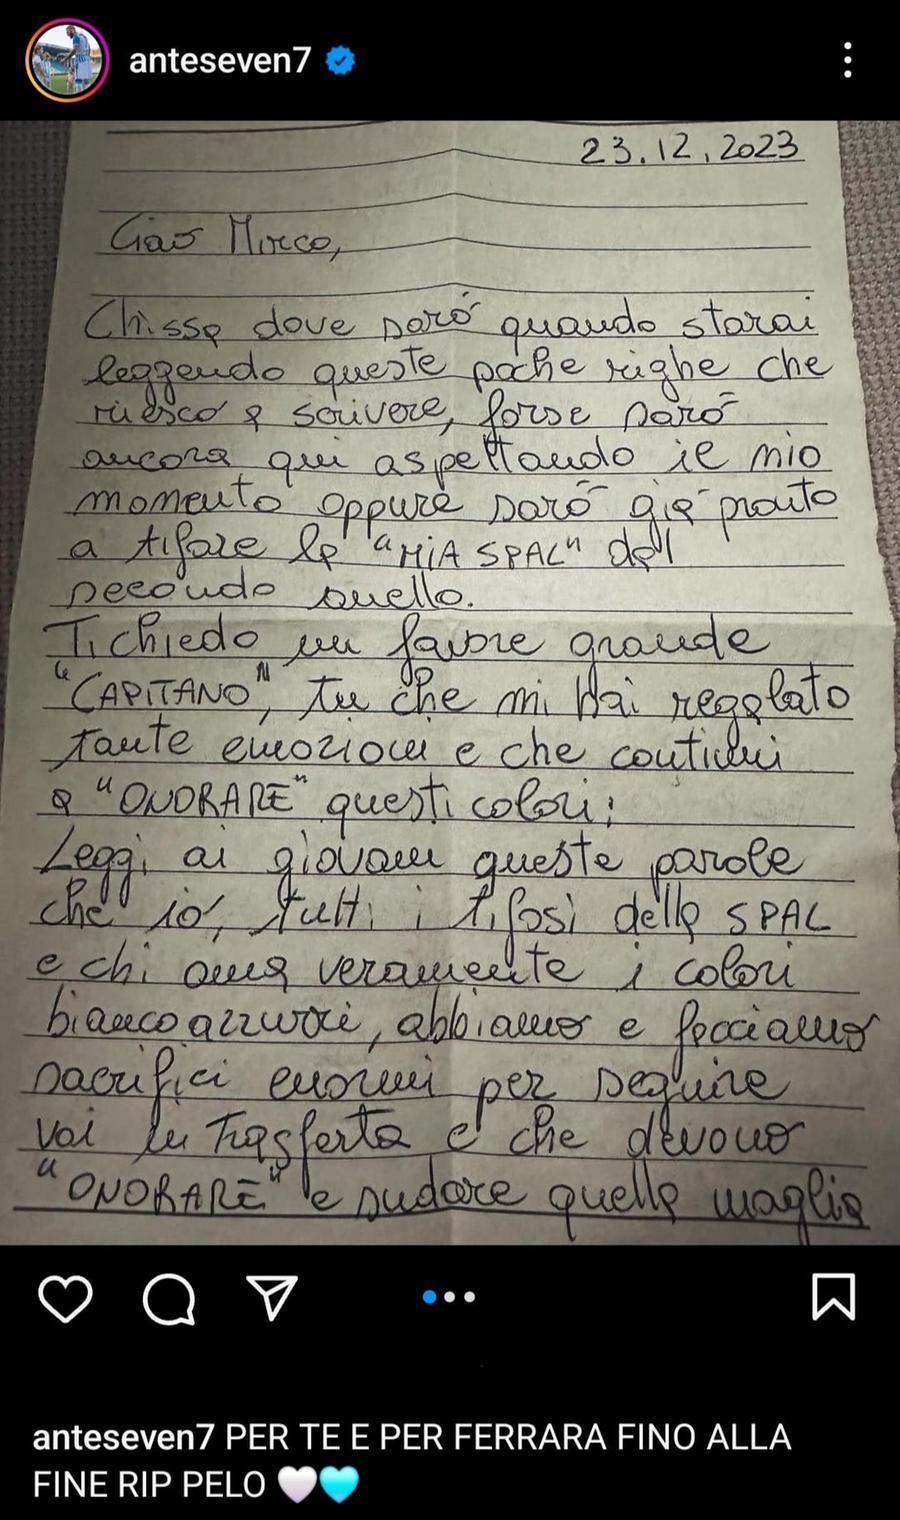 anteseven7
23.12.2023
Ciao Mirco,
Chissa dove sarò quando starai
leggendo queste poche righe che
riesco a scrivere, forse sarò
ancora qui aspettando il mio
momento oppure sarò già pronto
a tifare la "MIA SPAL" dal
secondo anello.
Ti chiedo un favore grande
"CAPITANO", tu che mi hai regalato
tante emozioni e che continui
a "ONORARE" questi colori;
Leggi ai giovani queste parole
che io, tutti i tifosi della SPAL
e chi ama veramente i colori
biancoazzurri, abbiamo e facciamo
sacrifici enormi per seguire
voi in Trasferta e che devono
"ONORARE" e sudare quella maglia
anteseven7 PER TE E PER FERRARA FINO ALLA
FINE RIP PELO 🤍🩵